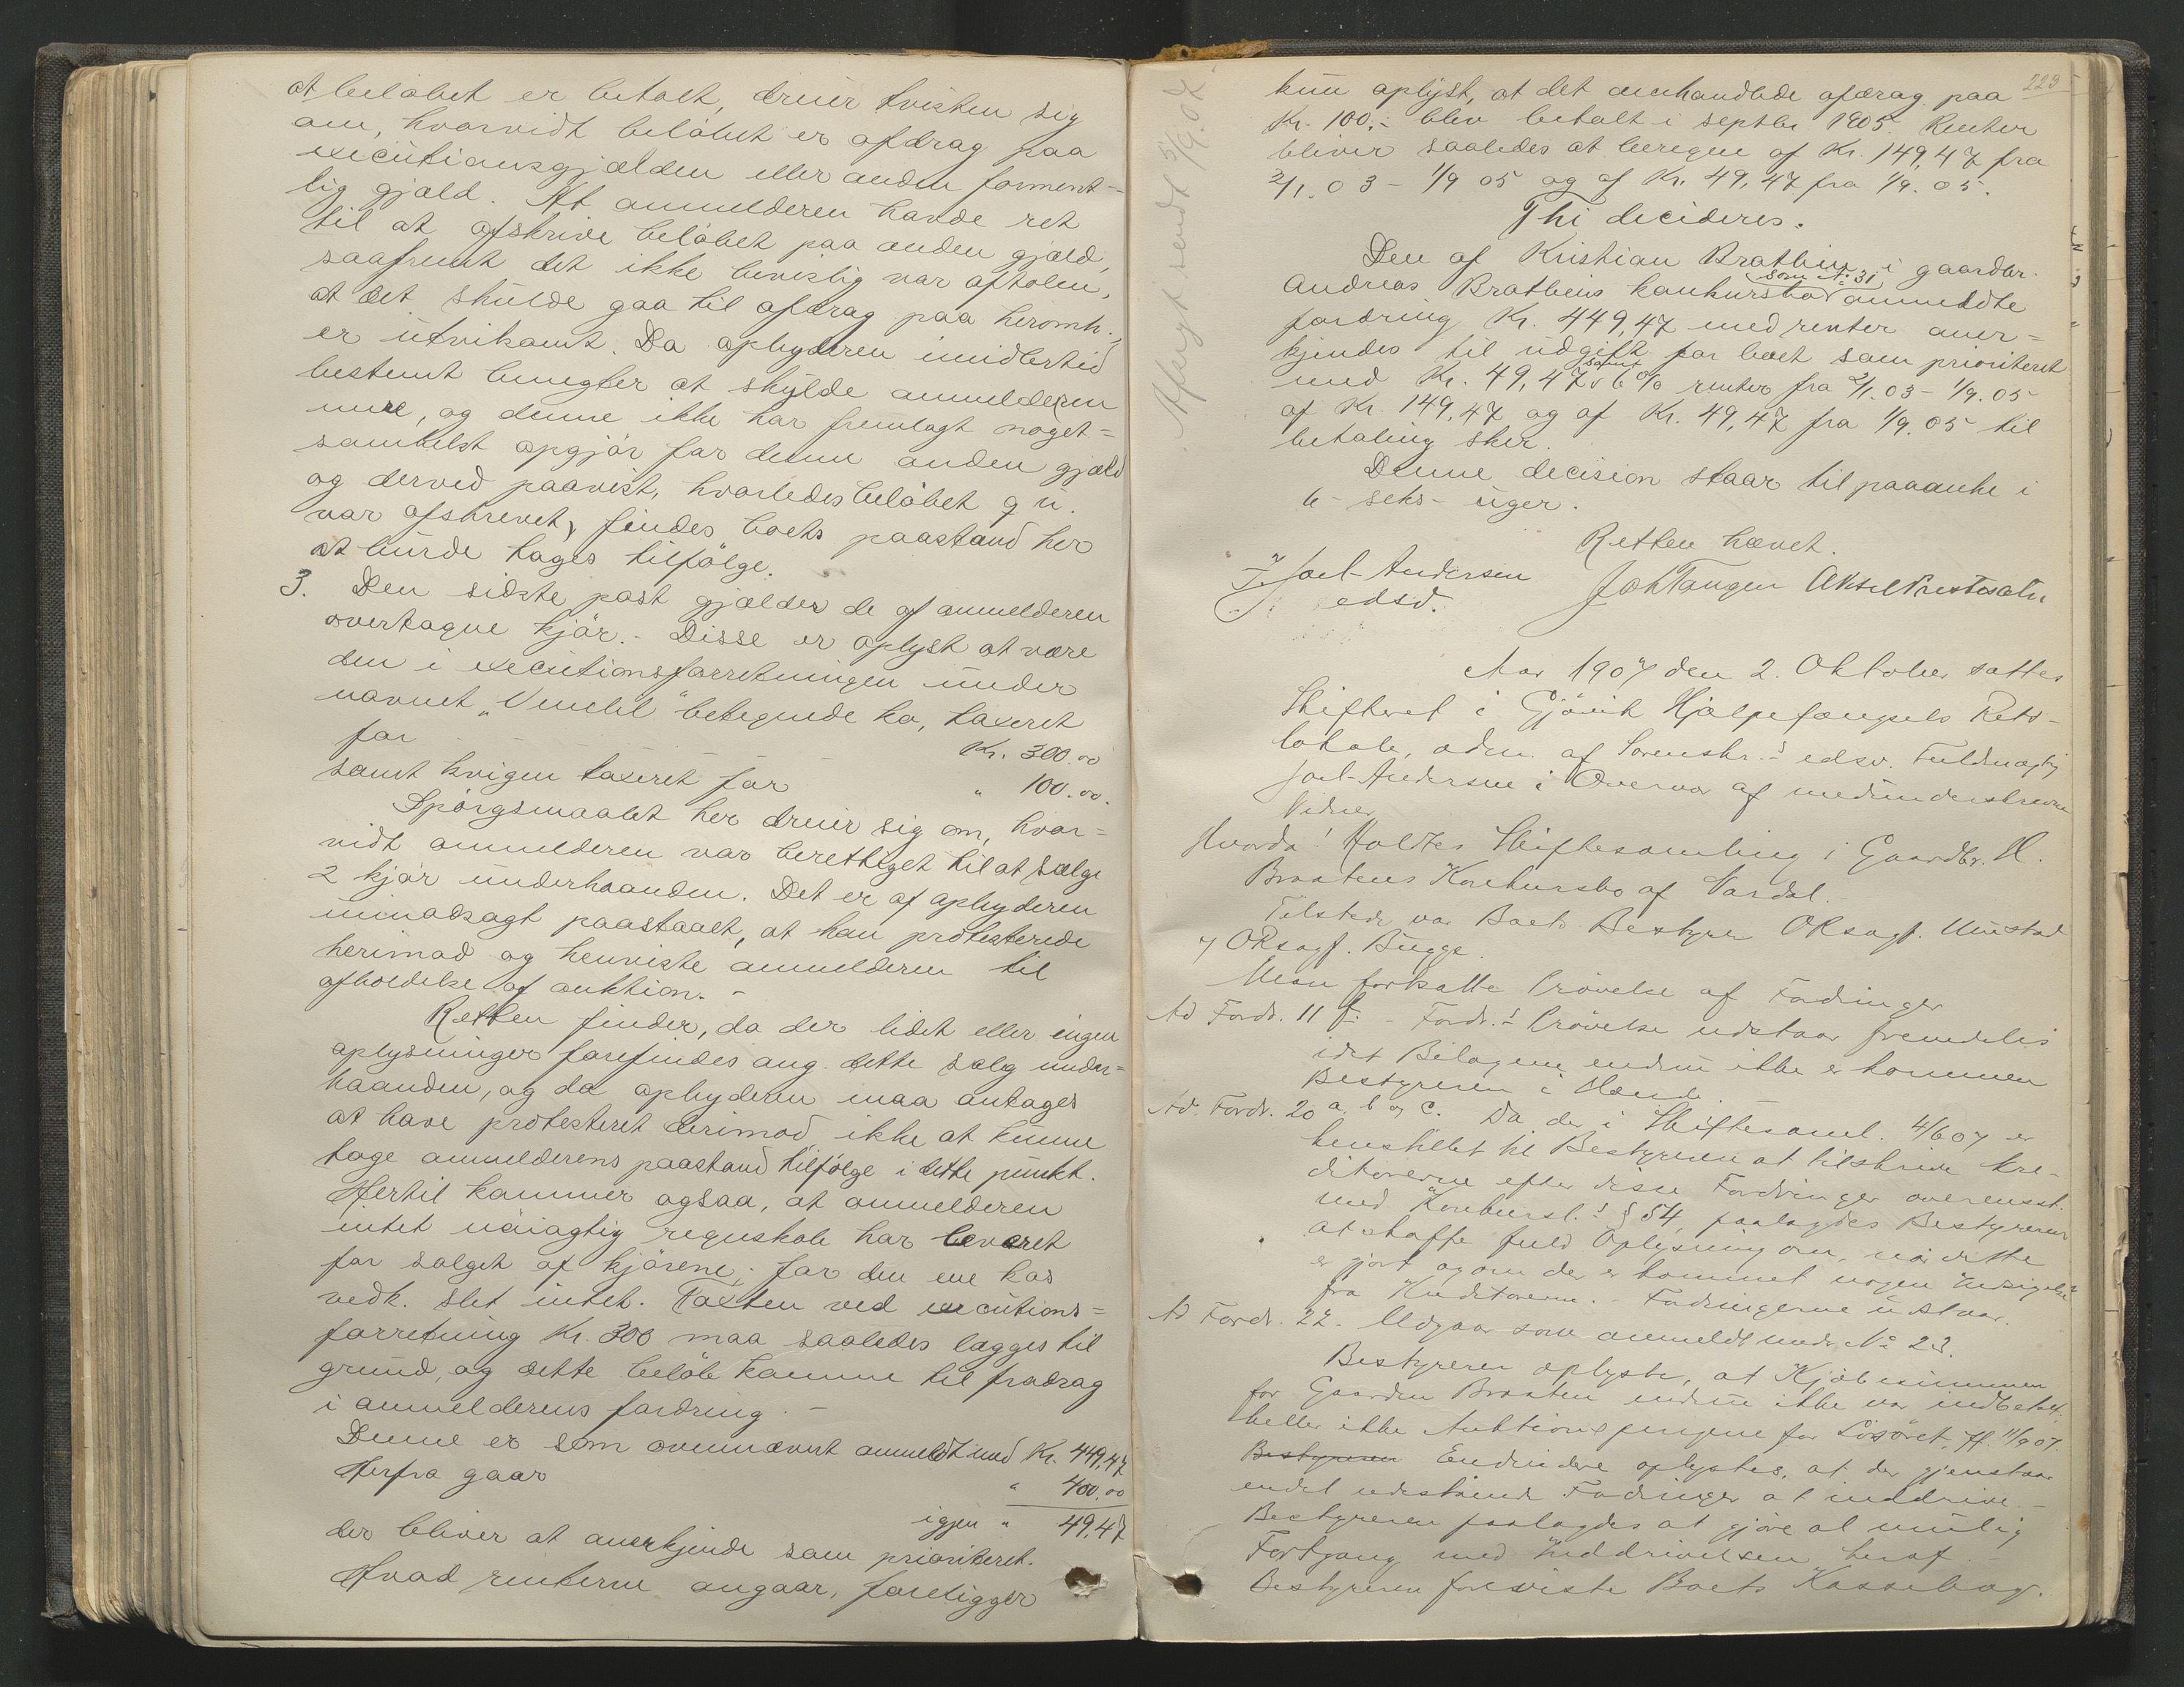 at beløbet er betalt, dreier tvisten sig
om, hvorvidt beløbet er afdrag paa
executionsgjælden eller anden forment-
lig gjæld. At anmelderen havde ret
til at afskrive beløbet paa anden gjæld,
saafremt det ikke bevislig var aftalen,
at det skulde gaa til afdrag paa heromh.,
er utvilsomt. Da opbyderen imidlertid
bestemt benegter at skylde anmelderen
mere, og denne ikke har fremlagt noget-
somhelst opgjør for denne anden gjæld
og derved paavist, hvorledes beløbet q. u.
var afskrevet, findes boets paastand her
at burde tages tilfølge.
3. Den sidste post gjælder de af anmelderen
overtagne kjør. - Disse er oplyst at være
den i executionsforretningen under
navnet "Vendel" betegnede ko, taxeret
for Kr. 300.00
samt kvigen taxeret for " 100.00.
Spørgsmaalet her dreier sig om, hvor-
vidt anmelderen var berettiget til at sælge
2 kjør underhaanden. Det er af opbyderen
uimodsagt paastaaet, at han protesterede
herimod og henviste anmelderen til
afholdelse af auktion. -
Retten finder, da der lidet eller ingen
oplysninger forefindes ang. dette salg under-
haanden, og da opbyderen maa antages
at have protesteret derimod, ikke at kunne
tage anmelderens paastand tilfølge i dette punkt.
Hertil kommer ogsaa, at anmelderen
intet nøiagtig regnskab har leveret
for salget af kjørene; for den ene kos
vedk. slet intet. Taxten ved executions-
forretning Kr. 300 maa saaledes lægges til
grund, og dette beløb komme til fradrag
i anmelderens fordring. -
Denne er som ovennævnt anmeldt med Kr. 449,47
Herfra gaar " 400.00
igjen " 49,47
der bliver at anerkjende som prioriteret.
Hvad renterne angaar, foreligger
223
kun oplyst, at det omhandlede afdrag paa
Kr. 100.- blev betalt i septbr. 1905. Renter
bliver saaledes at beregne af Kr. 149,47 fra
2/1.03 - 1/9 05 og af Kr. 49,47 fra 1/9.05.
Thi decideres.
Den af Kristian Bratlien i gaardbr.
Andreas Bratliens konkursbo som No. 31 anmeldte
fordring Kr. 449,47 med renter aner-
kjendes til udgift for boet som prioriteret
med Kr. 49,47 samt 6 % renter fra 2/1.03 - 1/9.05
af Kr. 149,47 og af Kr. 49,47 fra 1/9.05 til
betaling sker.
Denne decision staar til paaanke i
6 - seks - uger.
Retten hævet.
Joel-Andersen Joh Tangen Aksel Prestesæter
edsv.
Afskrift sendt 5/9.07
Aar 1907 den 2. Oktober sattes
Skifteret i Gjøvik Hjælpefængsels Rets-
lokale, adm. af Sorenskr.s edsv. Fuldmægtig
Joel-Andersen i Overvær af medunderskrevne
Vidner
Hvorda! Holdtes Skiftesamling i Gaardbr. H.
Braatens Konkursbo af Vardal.
Tilstede var Boets Bestyrer ORsagf. Mustad
og ORsagf. Bugge.
Man fortsatte Prøvelse af Fordringer
Ad Fordr. 11 f. - Fordr.s Prøvelse udstaar fremdeles
idet Bilagene endnu ikke er kommen
Bestyreren i Hænde.
Ad. Fordr. 20 a, b og c. Da der i Skiftesaml. 4/6 07 er
henstillet til Bestyreren at tilskrive kre-
ditorerne efter disse Fordringer overensst.
med Konkursl.s § 54, paalagdes Bestyreren
at skaffe fuld Oplysning om, naar dette
er gjort og om der er kommet nogen Indsigelse
fra Kreditorerne. - Fordringerne udstaar.
Ad Fordr. 22. Udgaar som anmeldt under No 23.
Bestyreren oplyste, at Kjøbesummen
for Gaarden Braaten endnu ikke var indbetalt,
heller ikke Auktionspengene for Løsøret, jf. 11/9 07.
Bestyreren Endvidere oplystes, at der gjenstaar
endel udestaaende Fordringer at inddrive. -
Bestyreren paalagdes at gjøre al mulig
Fortgang med Inddrivelsen heraf. -
Bestyreren foreviste Boets Kassebog.